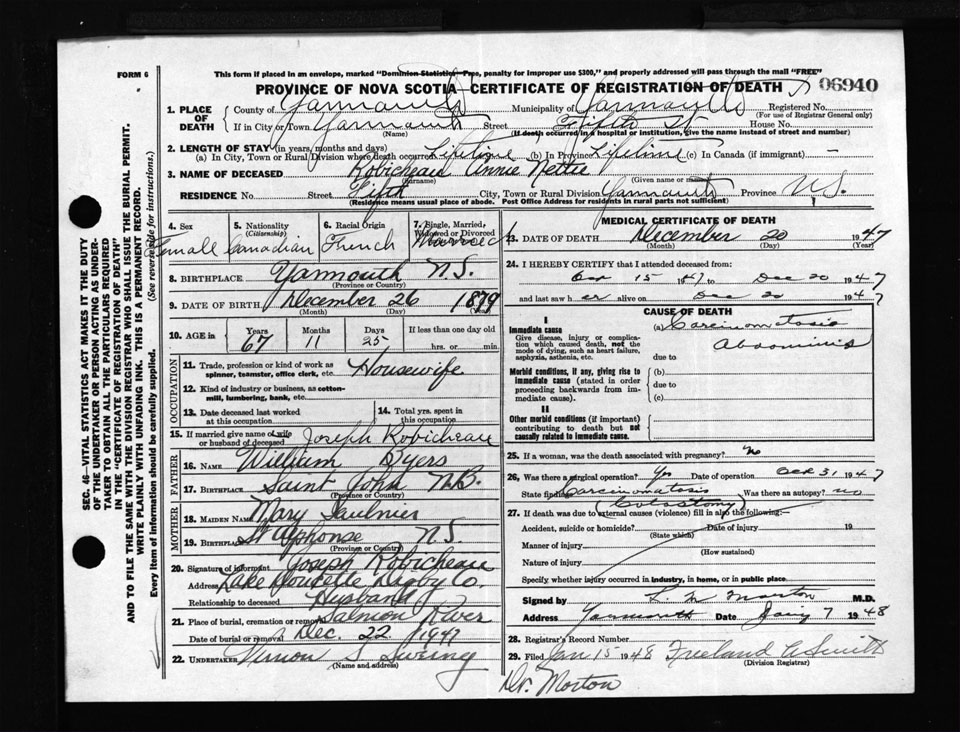 FORM 6
This form if placed in an envelope, marked "Dominion Statistics—Free, penalty for improper use $300," and properly addressed will pass through the mail "FREE"
PROVINCE OF NOVA SCOTIA—CERTIFICATE OF REGISTRATION OF DEATH 06940
1. PLACE OF DEATH County of Yarmouth Municipality of Yarmouth Registered No.
(For use of Registrar General only)
If in City or Town Yarmouth Street Fifth St House No.
(Name) (If death occurred in a hospital or institution, give the name instead of street and number)
2. LENGTH OF STAY (in years, months and days)
(a) In City, Town or Rural Division where death occurred Lifetime (b) In Province Lifetime (c) In Canada (if immigrant) —
3. NAME OF DECEASED Robicheau Annie Nettie
(Surname) (Given name or names)
RESIDENCE No Street Fifth City, Town or Rural Division Yarmouth Province N.S.
(Residence means usual place of abode. Post Office Address for residents in rural parts not sufficient)
4. Sex Female
5. Nationality (Citizenship) Canadian
6. Racial Origin French
7. Single, Married, Widowed or Divorced Married
8. BIRTHPLACE Yarmouth N.S.
(Province or Country)
9. DATE OF BIRTH December 26 1879
(Month) (Day) (Year)
10. AGE in Years 67 Months 11 Days 25 If less than one day old hrs. or min.
OCCUPATION
11. Trade, profession or kind of work as spinner, teamster, office clerk, etc. Housewife
12. Kind of industry or business, as cotton-mill, lumbering, bank, etc.
13. Date deceased last worked at this occupation
14. Total yrs. spent in this occupation
15. If married give name of wife or husband of deceased Joseph Robicheau
FATHER
16. NAME William Byers
17. BIRTHPLACE Saint John N.B.
(Province or Country)
MOTHER
18. MAIDEN NAME Mary Saulnier
19. BIRTHPLACE St Alphonse N.S.
(Province or Country)
20. Signature of informant Joseph Robicheau
Address Lake Doucette Digby Co.
Relationship to deceased Husband
21. Place of burial, cremation or removal Salmon River
Date of burial or removal Dec. 22 1947
22. UNDERTAKER Vernon S Sweeny
(Name and address)
MEDICAL CERTIFICATE OF DEATH
23. DATE OF DEATH December 20 1947
(Month) (Day) (Year)
24. I HEREBY CERTIFY that I attended deceased from:
15 1947 to Dec 20 1947
and last saw h er alive on Dec 20 1947
CAUSE OF DEATH
I
Immediate cause (a) Carcinomatosis
Give disease, injury or complication which caused death, not the mode of dying, such as heart failure, asphyxia, asthenia, etc. Abdominis
due to
Morbid conditions, if any, giving rise to immediate cause (stated in order proceeding backwards from immediate cause). (b)
due to
(c)
II
Other morbid conditions (if important) contributing to death but not causally related to immediate cause.
25. If a woman, was the death associated with pregnancy? No
26. Was there a surgical operation? Yes Date of operation Oct 31 1947
State findings Carcinomatosis Was there an autopsy? no
27. If death was due to external causes (violence) fill in also the following:—
Accident, suicide or homicide? Date of injury 19
(State which)
Manner of injury
(How sustained)
Nature of injury
Specify whether injury occurred in industry, in home, or in public place
Signed by L M Morton M.D.
Address Yarmouth Date Jany 7 1948
28. Registrar's Record Number
29. Filed Jan 15 1948 Freeland A Smith
(Division Registrar)
Dr. Morton
SEC. 46—VITAL STATISTICS ACT MAKES IT THE DUTY
OF THE UNDERTAKER OR PERSON ACTING AS UNDER-
TAKER TO OBTAIN ALL THE PARTICULARS REQUIRED
IN THE "CERTIFICATE OF REGISTRATION OF DEATH"
AND TO FILE THE SAME WITH THE DIVISION REGISTRAR WHO SHALL ISSUE THE BURIAL PERMIT.
WRITE PLAINLY WITH UNFADING INK. THIS IS A PERMANENT RECORD.
Every item of information should be carefully supplied. (See reverse side for instructions.)